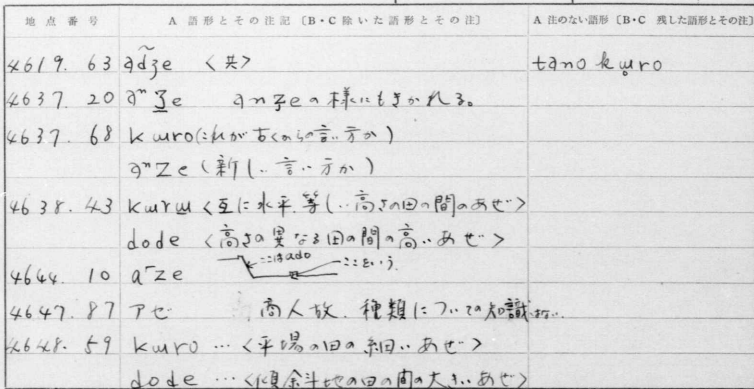 地点番号 A 語形とその注記〔B・C 除いた語形とその注〕 A 注のない語形〔B・C 残した語形とその注〕
4619. 63 ãdʒe 〈共〉 tano kɯ̥ro
4637. 20 aⁿʒe anʒeの様にもきかれる。
4637. 68 kɯro(これが古くからの言い方か)
aⁿze (新しい言い方か)
4638. 43 kɯrɯ 〈互に水平、等しい高さの田の間のあぜ〉
dode 〈高さの異なる田の間の高いあぜ〉
ここはado ここをいう
4644. 10 a~ze
4647. 87 アゼ 商人故、種類についての知識ない。
4648. 59 kɯro … 〈平場の田の細いあぜ〉
dode … 〈傾斜地の田の間の大きいあぜ〉